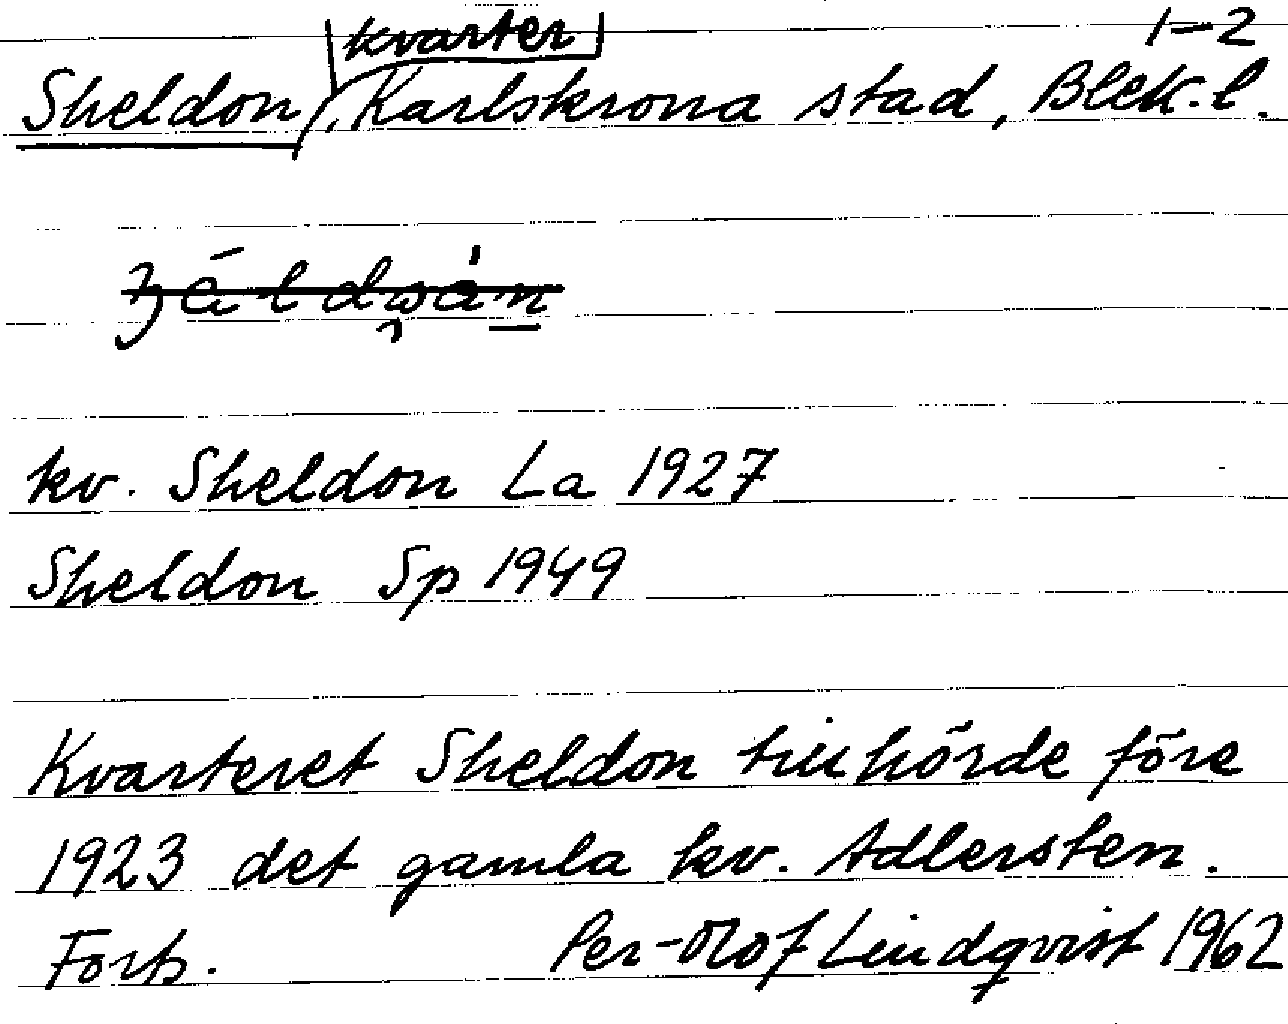 kvarter 1-2
Sheldon, Karlskrona stad, Blek. l.
kv. Sheldon La 1927
Sheldon Sp 1949
Kvarteret Sheldon tillhörde före
1923 det gamla kv. Adlersten.
Forts. Per-Olof Lindqvist 1962